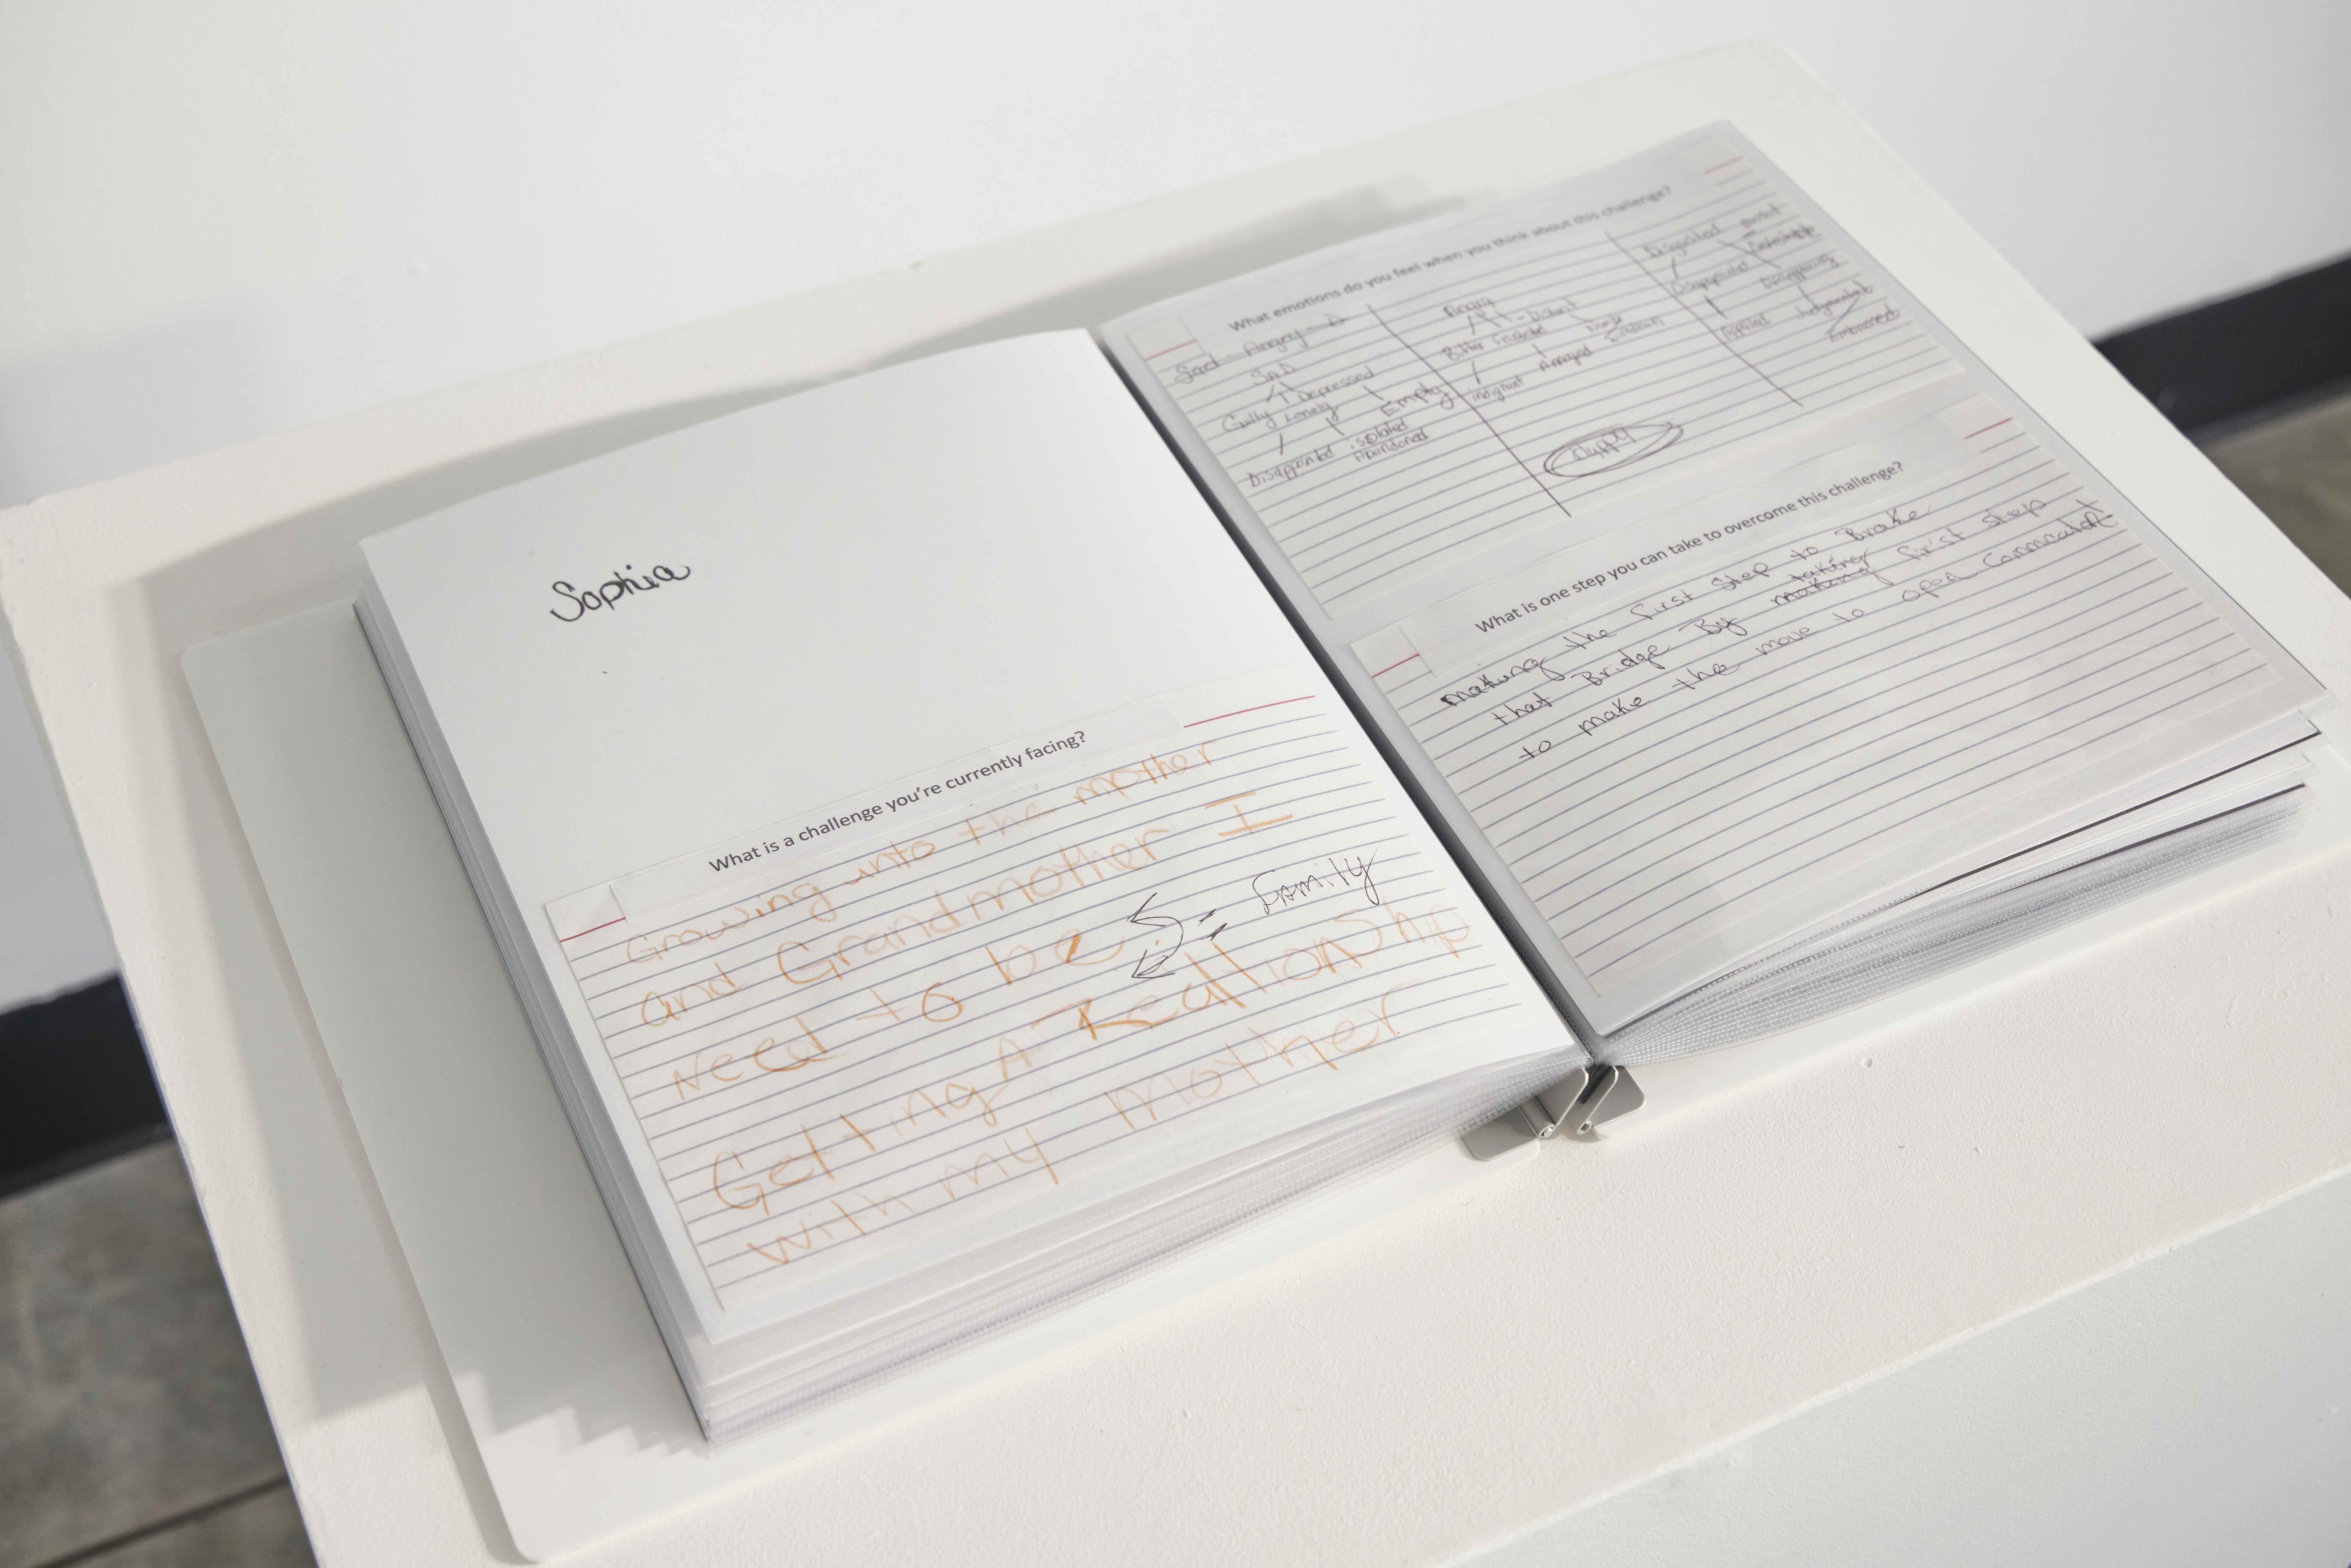 Sophia
What is a challenge you're currently facing?
Growing unto the mother
and Grandmother I
Need to be
:- Family
Getting A Reationship
with my Mother
What emotions do you feel when you think about this challenge?
Sad - Angry - D
SAD
Depressed
Guilty Lonely Empty
Disappointed isolated
Abandoned
Angry
Distant
Bitter Frustrated Numb
indignant Annoyed
Disgusted
Detestable
Disappointed
Appalled Judgmental
Embarrassed
What is one step you can take to overcome this challenge?
making the first step to Brake
that Bridge By making taking first step
to make the move to open